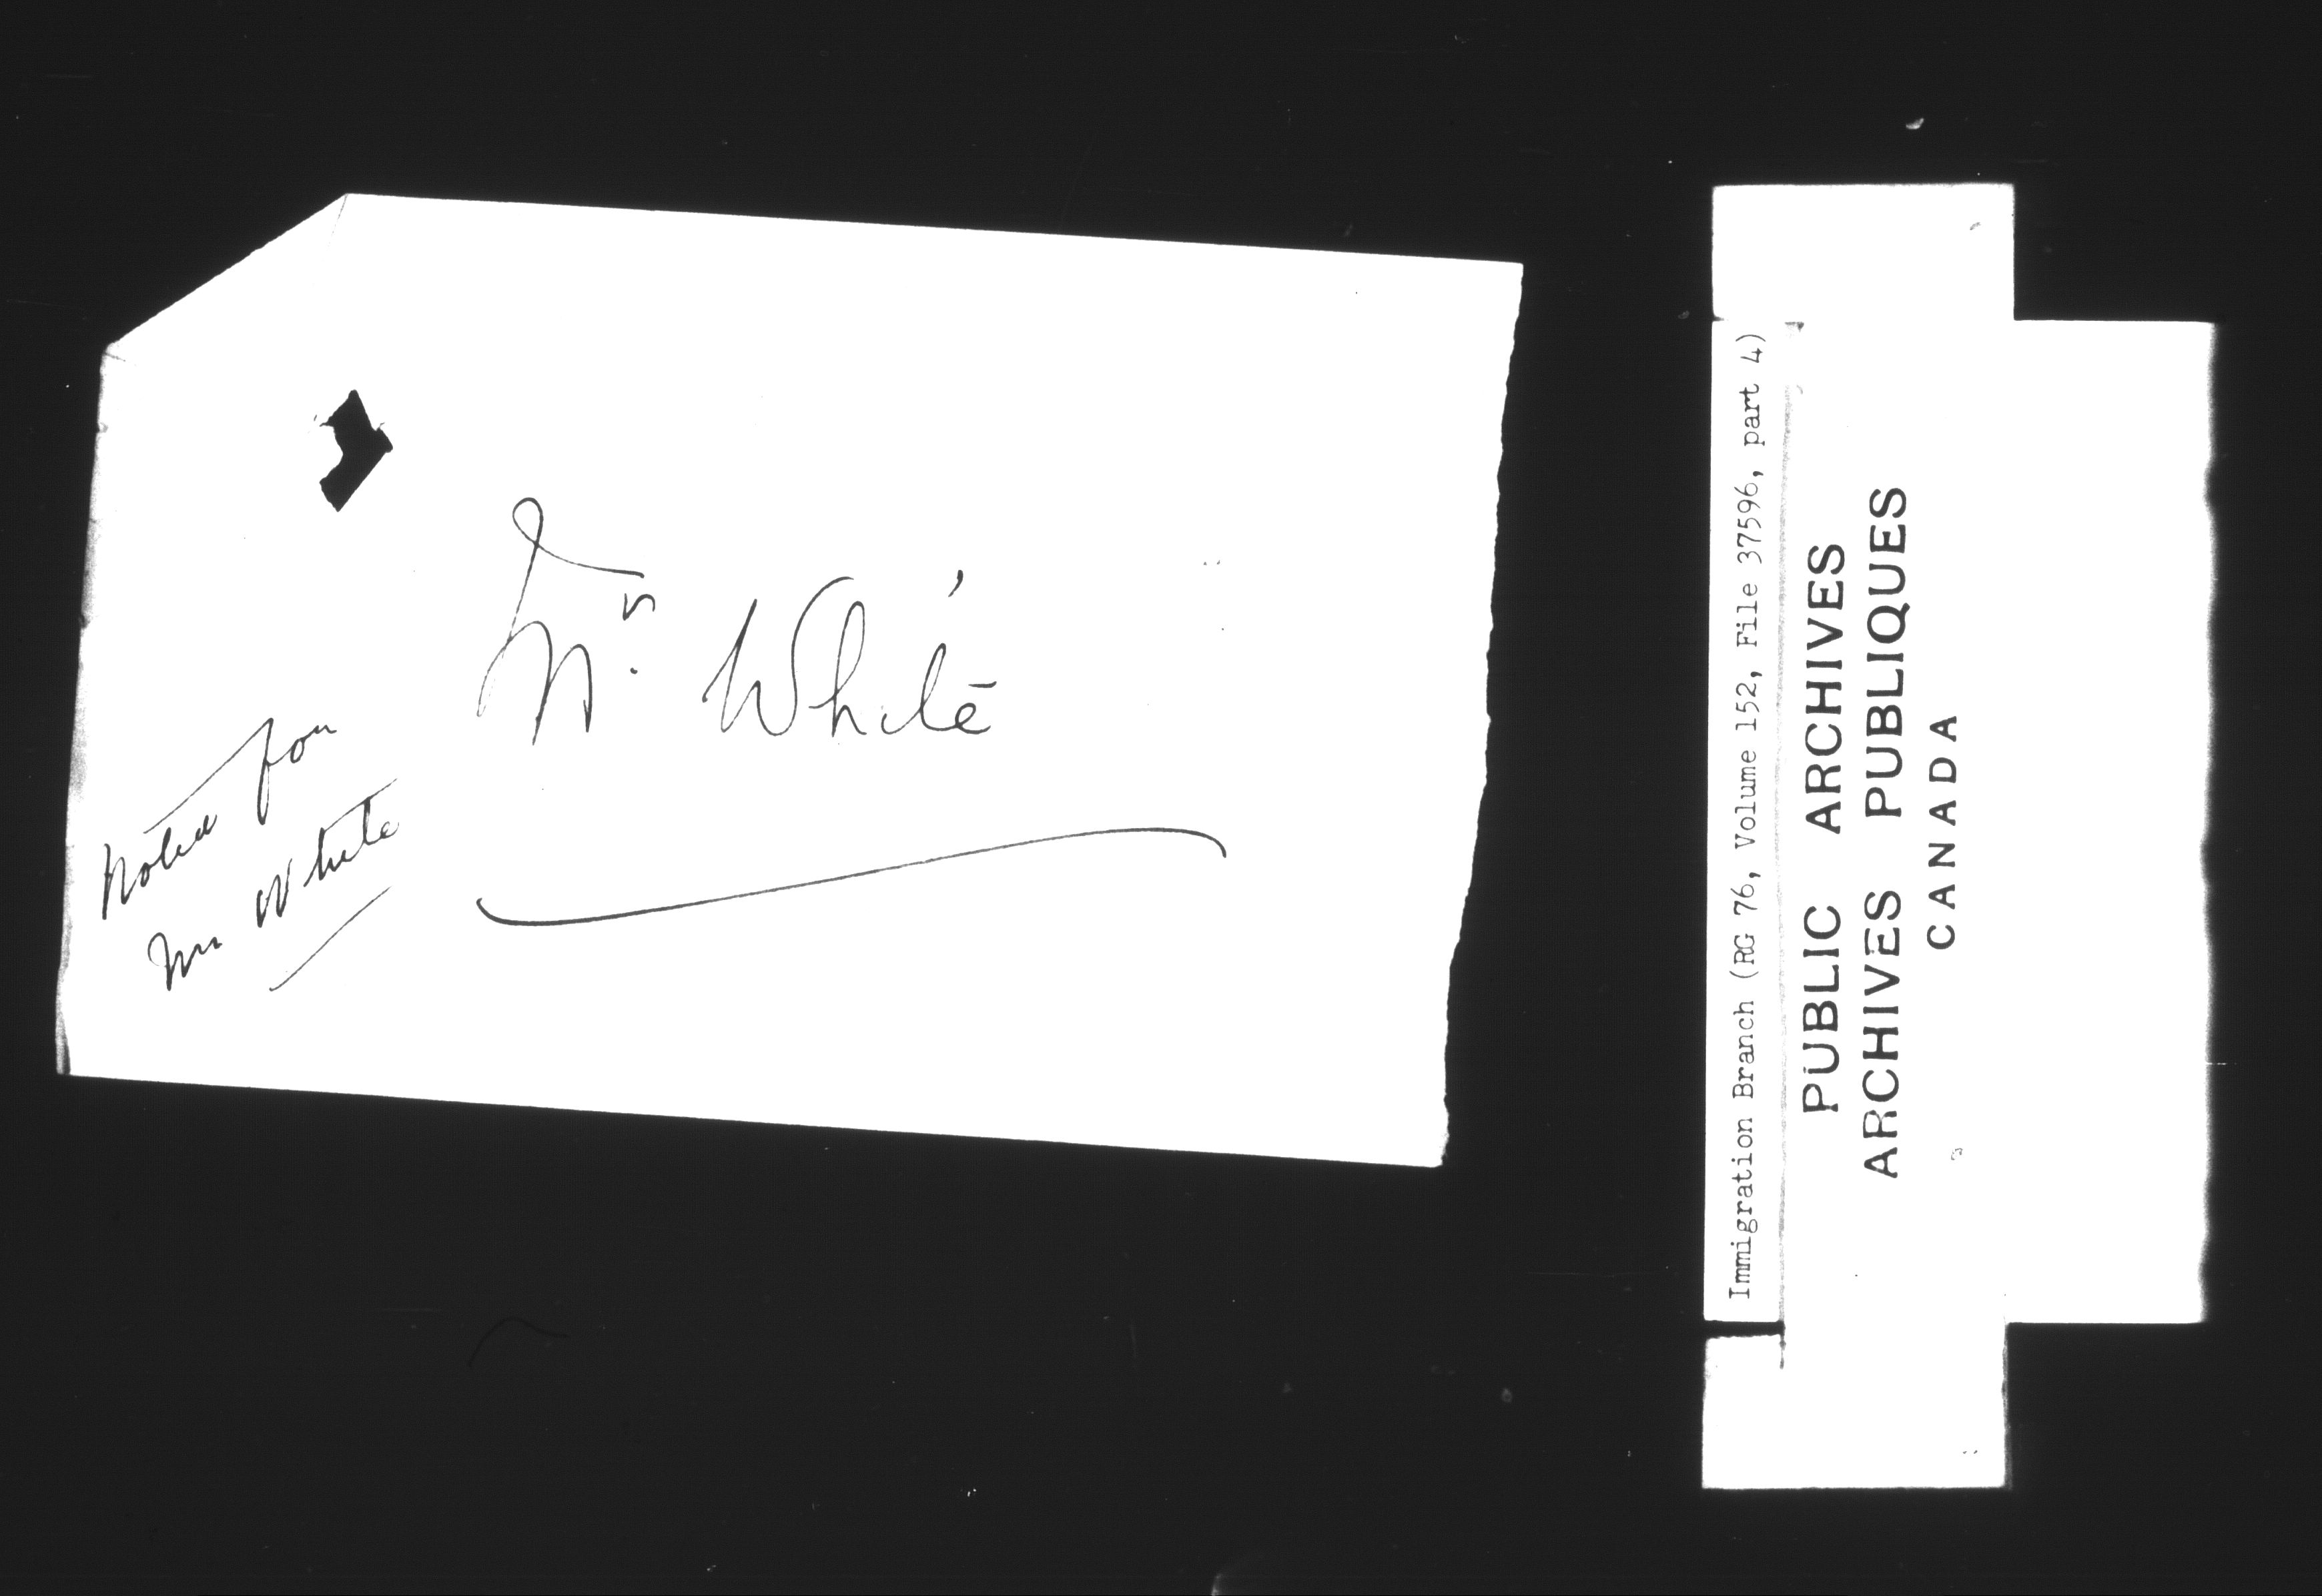 Mr. White
Noted for
Mr White
Immigration Branch (RG 76, Volume 152, File 37596, part 4)
PUBLIC ARCHIVES
ARCHIVES PUBLIQUES
CANADA